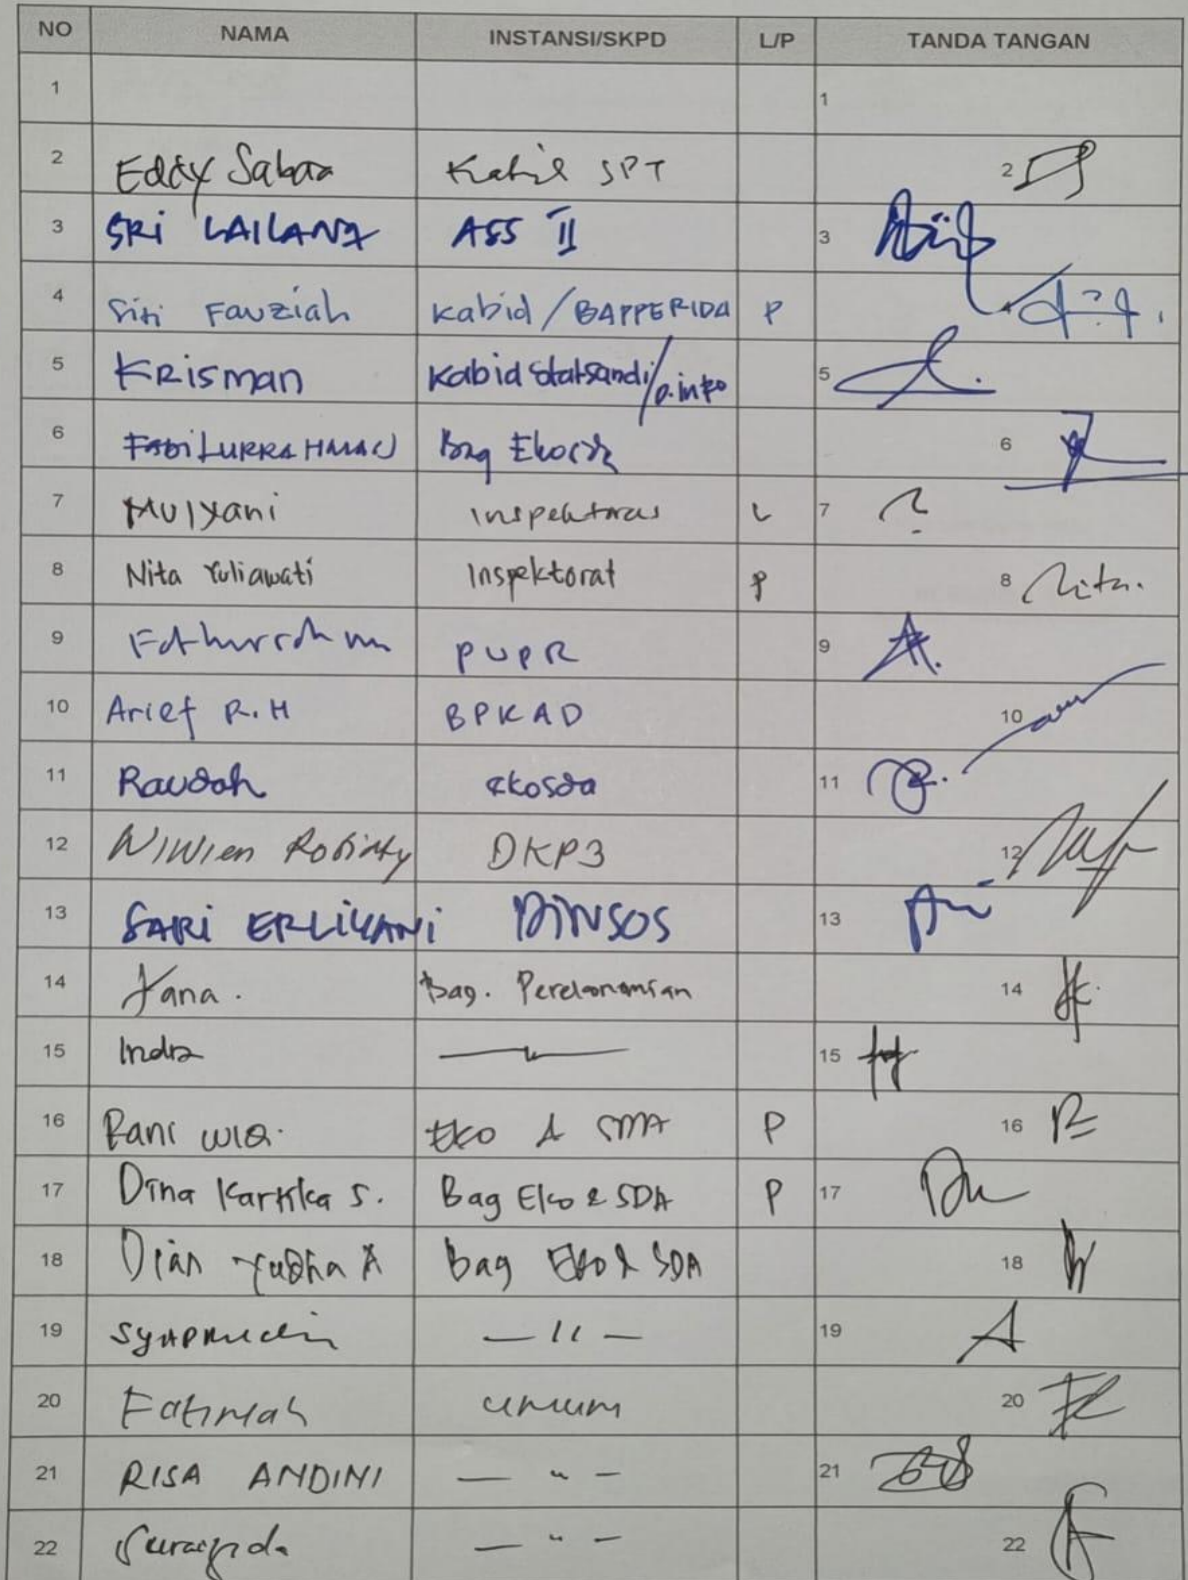 NO NAMA INSTANSI/SKPD L/P TANDA TANGAN
1 1
2 Eddy Sabara SPT 2
3 SRI LAILANA ASS II 3
4 Siti Fauziah Kabid/BAPPERIDA P
5 KRISMAN Kabid Statsandi/D.info 5
6 Bag 6
7 Mulyani L 7
8 Nita Yuliawati Inspektorat P 8 Nita.
9 PUPR 9
10 Arief R.H BPKAD 10
11 Raudah ekosda 11
12 Wiwien DKP3 12
13 SARI ERLIYANI DINSOS 13
14 Yana. Bag. Perekonomian 14
15 Indra — " — 15
16 Rani P 16
17 Dina Kartika S. Bag Eko & SDA P 17
18 Dian Yudha A Bag Eko & SDA 18
19 — 11 — 19
20 Fatimah umum 20
21 RISA ANDINI — " — 21
22 — " — 22